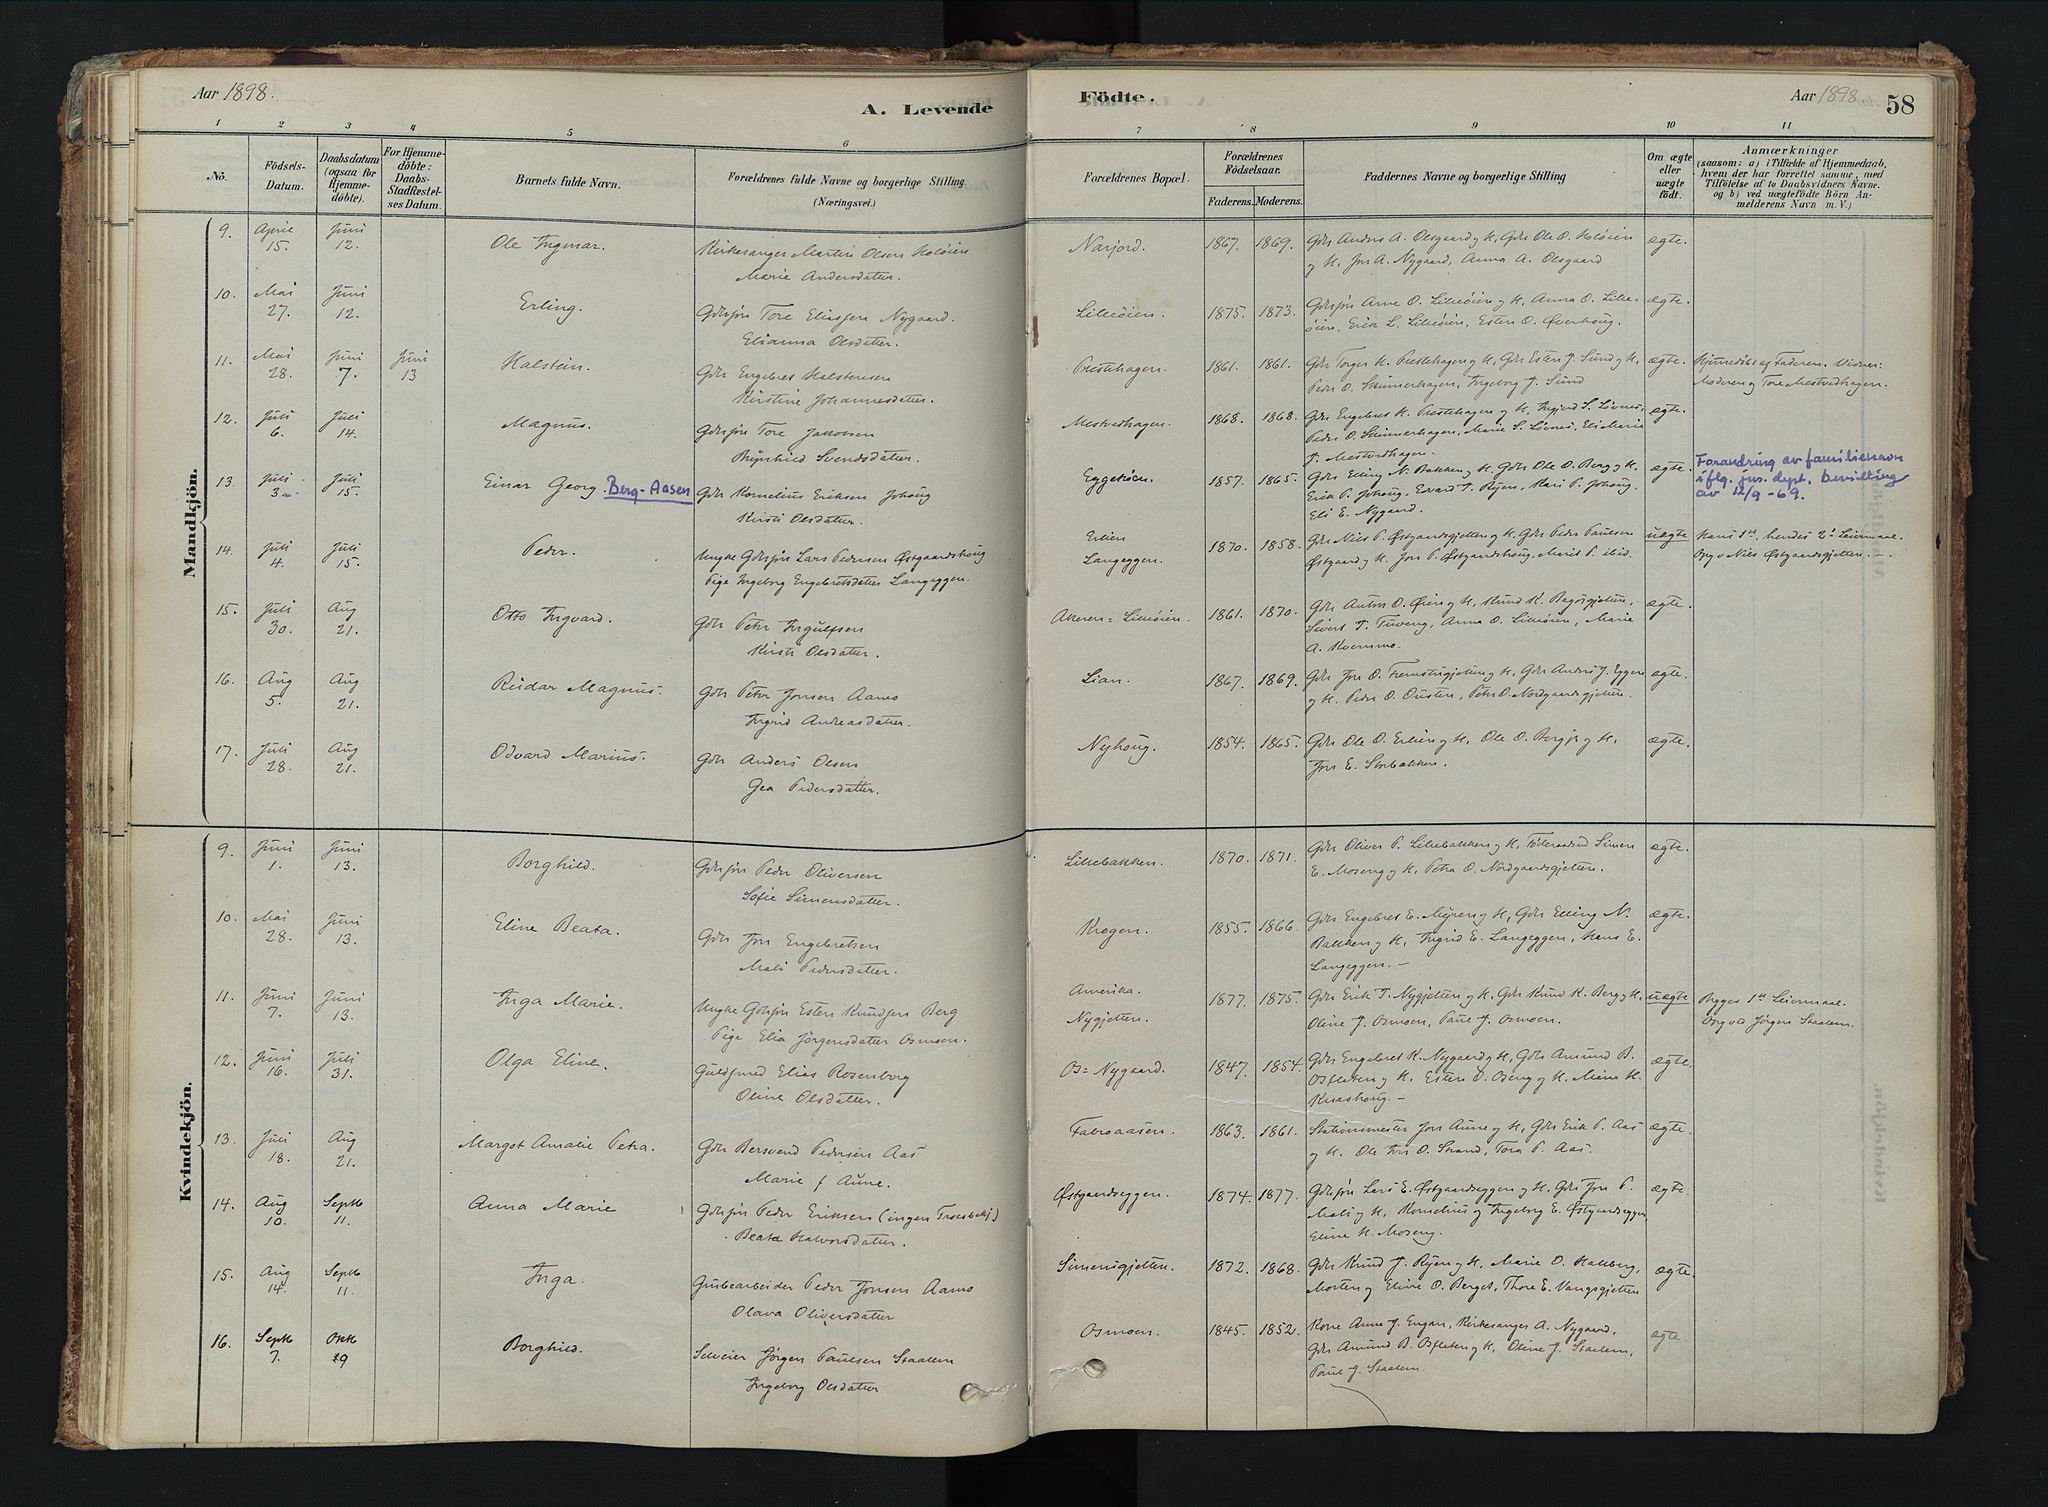 Aar 1898.
A. Levende
Födte.
Aar 1898
58
1 2 3 4 5 6 7 8 9 10 11
No. Födsels-Datum. Daabsdatum (ogsaa for Hjemme-döbte). For Hjemme-döbte: Daabs-Stadfæstel-ses Datum. Barnets fulde Navn. Forældrenes fulde Navne og borgerlige Stilling (Næringsvei.) Forældrenes Bopæl. Forældrenes Födselsaar. Faderens. Moderens. Faddernes Navne og borgerlige Stilling Om ægte eller uægte födt. Anmærkninger (saasom: a) i Tilfælde af Hjemmedaab, hvem der har forrettet samme, med Tilföielse af to Daabsvidners Navne. og b) ved uægtefödte Börn An-melderens Navn m. V.)
Mandkjön.
9. April 15. Juni 12. Ole Ingmar. Kirkesanger Martin Olsen Holöien
Marie Andersdatter. Narjord. 1867. 1869. Gdr Anders A. Olsgaard & H, Gdr Ole O. Holöien
& H, Jon A. Nygaard, Anna A. Olsgaard ægte.
10. Mai 27. Juni 12. Erling. Gdrsøn Tore Eliassen Nygaard.
Elianna Olsdatter. Lilleöien. 1875. 1873. Gdrsøn Arne O. Lilleöien & H, Anna O. Lille-
öien, Erik L. Lilleöien, Esten O. Øverhoug. ægte.
11. Mai 28. Juni 7. Juni 13 Halstein. Gdr Engebret Halstensen
Kirstine Johannesdatter. Prestehagen. 1861. 1861. Gdr Torger H. Prestehagen & H, Gdr Esten J. Sund & H,
Peder O. Skinnerhagen, Ingeborg J. Sund ægte. Hjemmedöbt af Faderen. Vidner:
Moderen & Tore Mestvedhagen.
12. Juli 6. Juli 14. Magnus. Gdrsøn Tore Jakobsen
Brynhild Svendsdatter. Mestvedhagen. 1868. 1868. Gdr Engebret H. Prestehagen & H, Ingeborg S. Lövnes,
Peder O. Skinnerhagen, Marie S. Lövnes, Eli Marie
J. Mestvedhagen. ægte.
13. Juli 3 Juli 15. Einar Georg. Berg-Aasen Gdr Kornelius Eriksen Johoug
Kirsti Olsdatter. Eggekoien. 1857. 1865. Gdr Elling N. Bakken & H, Gdr Ole O. Berg & H,
Erik P. Johoug, Edvard T. Ryen, Kari P. Johoug,
Eli E. Nygaard. ægte. Forandring av familienavn
iflg. jus. dept. bevilling
av 12/9-69.
14. Juli 4. Juli 15. Peder. Ungkr Gdrsøn Lars Pedersen Østgaardshoug
Pige Ingeborg Engebretsdatter Langeggen. Erlien
Langeggen. 1870. 1858. Gdr Niels P. Østgaardsgjetten & H, Gdr Peder Paulsen
Østgaard & H, Jon P. Østgaardshoug, Marit P. ibid. uægte Hans 1ste, hendes 2de Leiermaal.
Opgv Niels Østgaardsgjetten.
15. Juli 30. Aug 21. Otto Ingvard. Gdr Peter Ingulfsen
Kirsti Olsdatter. Akeren=Lilleöien. 1861. 1870. Gdr Anton O. Øien & H, Knud K. Bagosgjetten,
Sivert T. Tuveng, Anna O. Lilleöien, Marie
A. Kvernmo. ægte.
16. Aug 5. Aug 21. Reidar Magnus. Gdr Peter Jonsen Aamo
Ingrid Andreasdatter. Lian. 1867. 1869. Gdr Jon O. Fremstugjetten & H, Gdr Anders J. Eggen
& H, Peder O. Ousten, Peter O. Nordgaardsgjetten. ægte.
17. Juli 28. Aug 21. Odvard Marius. Gdr Anders Olsen
Gea Pedersdatter. Nyhoug. 1854. 1865. Gdr Ole O. Erlien & H, Ole O. Borgos & H,
Jon E. Storbakken. ægte.
Kvindekjön.
9. Juni 1. Juni 13. Borghild. Gdrsøn Peder Oliversen
Sofie Simensdatter. Lillebakken. 1870. 1871. Gdr Oliver P. Lillebakken & H, Föderaadsmd Simen
E. Moseng & H, Petra O. Nordgaardsgjetten. ægte.
10. Mai 28. Juni 13. Eline Beata. Gdr Jon Engebretsen
Mali Pedersdatter. Krogen. 1855. 1866. Gdr Engebret E. Myren & H, Gdr Elling N.
Bakken & H, Ingrid E. Langeggen, Hans E.
Langeggen. ægte.
11. Juni 7. Juni 13. Inga Marie. Ungkr Gdrsøn Esten Knudsen Berg
Pige Elia Jörgensdatter Osmoen. Amerika.
Nygjetten. 1877. 1875. Gdr Erik T. Nygjetten & H, Gdr Knud K. Berg & H,
Oline J. Osmoen, Paul J. Osmoen. uægte Begges 1ste Leiermaal.
Opgvd Jörgen Staalem.
12. Juni 16. Juli 31. Olga Eline. Guldsmed Elias Rosenborg
Oline Olsdatter. Os=Nygaard. 1847. 1854. Gdr Engebret K. Nygaard & H, Gdr Amund B.
Osfloten & H, Esten O. Oseng & H, Mina H.
Kuashoug. ægte.
13. Juli 18. Aug 21. Margot Amalie Petra. Gdr Bersvend Pedersen Aas
Marie f Aune. Fabroaasen. 1863. 1861. Stationsmester Jon Aune & H, Gdr Erik P. Aas
& H. Ole Jon O. Strand, Tora P. Aas. ægte.
14. Aug 10. Septb 11. Anna Marie Gdrsøn Peder Eriksen (ingen Troesbekj.)
Beata Halvorsdatter. Østgaardseggen. 1874. 1877. Gdrsøn Lars E. Østgaardseggen & H, Gdr Jon P.
Mali & H, Kornelius & Ingeborg E. Østgaardseggen,
Eline H. Moseng. ægte.
15. Aug 14. Septb 11. Inga. Grubearbeider Peder Jonsen Aamo
Olava Oliversdatter Simensgjetten. 1872. 1868. Gdr Knud J. Ryen & H, Marie O. Hallberg,
Morten & Eline O. Berget, Thore E. Vangsgjetten ægte.
16. Septb 7. Oktb 9 Borghild. Selveier Jörgen Paulsen Staalem
Ingeborg Olsdatter Osmoen. 1845. 1852. Kone Anne J. Engan, Kirkesanger A. Nygaard,
Gdr Amund B. Osfloten & H, Oline J. Staalem,
Paul J. Staalem. ægte.